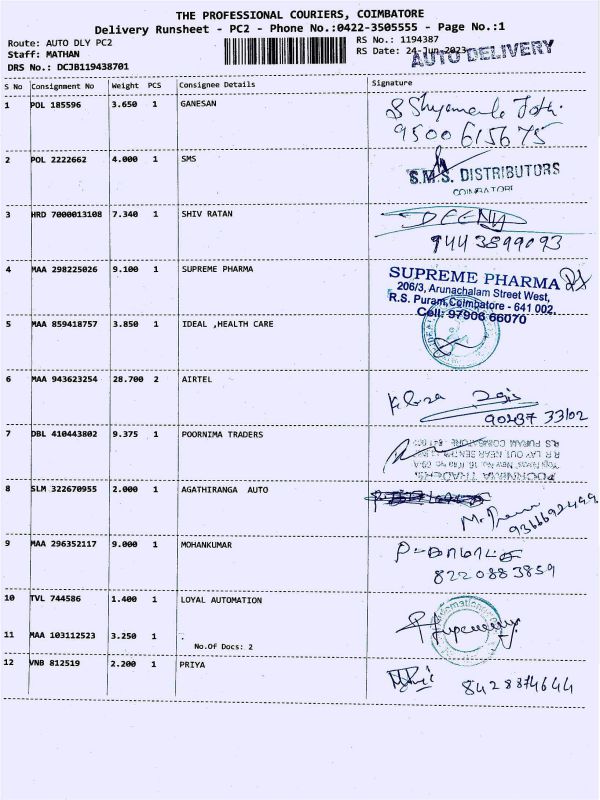 THE PROFESSIONAL COURIERS, COIMBATORE
Delivery Runsheet - PC2 - Phone No.:0422-3505555 - Page No.:1
Route: AUTO DLY PC2
Staff: MATHAN
DRS No.: DCJB119438701
RS No.: 1194387
RS Date: 24-Jun-2023
AUTO DELIVERY
S No Consignment No Weight PCS Consignee Details Signature
1 POL 185596 3.650 1 GANESAN
9500615675
2 POL 2222662 4.000 1 SMS
S.M.S. DISTRIBUTORS
COIMBATORE
3 HRD 7000013108 7.340 1 SHIV RATAN
DEENA
9443899093
4 MAA 298225026 9.100 1 SUPREME PHARMA
SUPREME PHARMA
206/3, Arunachalam Street West,
R.S. Puram, Coimbatore - 641 002.
Cell: 97906 66070
5 MAA 859418757 3.850 1 IDEAL ,HEALTH CARE
6 MAA 943623254 28.700 2 AIRTEL
7 DBL 410443802 9.375 1 POORNIMA TRADERS
POORNIMA TRADERS
8 SLM 322670955 2.000 1 AGATHIRANGA AUTO
9366692499
9 MAA 296352117 9.000 1 MOHANKUMAR
8220883859
10 TVL 744586 1.400 1 LOYAL AUTOMATION
11 MAA 103112523 3.250 1
No.Of Docs: 2
12 VNB 812519 2.200 1 PRIYA
8428874644